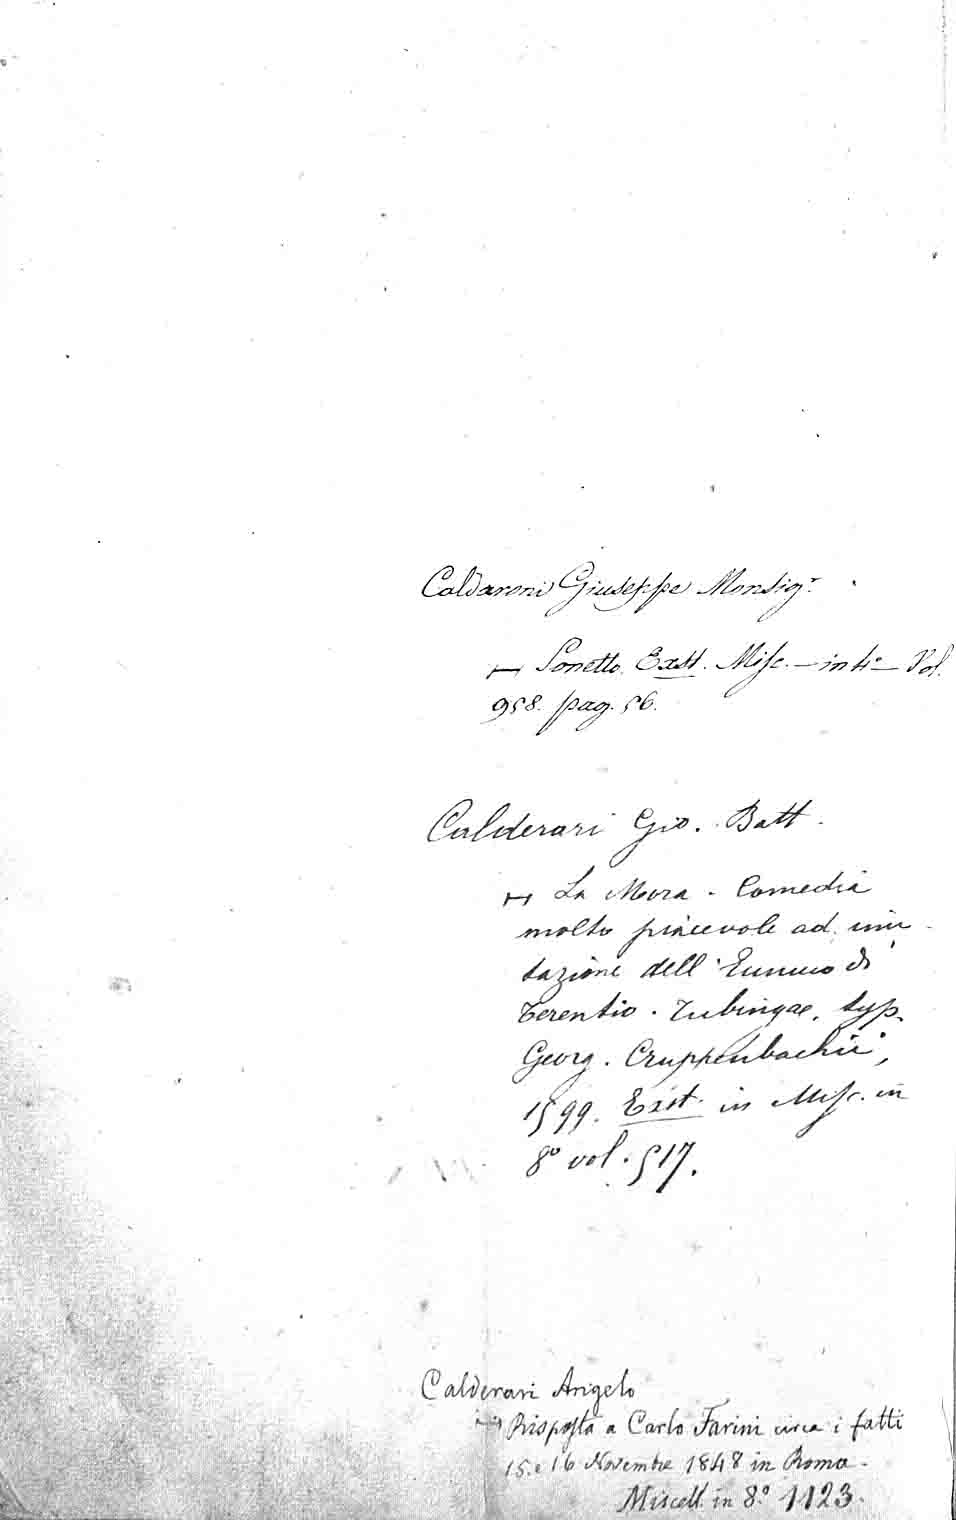 Caldaroni Giuseppe Monsigr.
⊢ Sonetto. Exst. Misc. — in 4° — Vol.
958. pag. 56.
Calderari Gio. Batt.
⊢ La Mora - Comedia
molto piacevole ad imi-
tazione dell'Eunuco di
Terentio. Tubingae, typ.
Georg. Cruppenbachii,
1599. Exst. in Misc. in
8° vol. 517.
Calderari Angelo
⊢ Risposta a Carlo Farini circa i fatti
15. e 16 Novembre 1848 in Roma.
Miscell. in 8.° 1123.